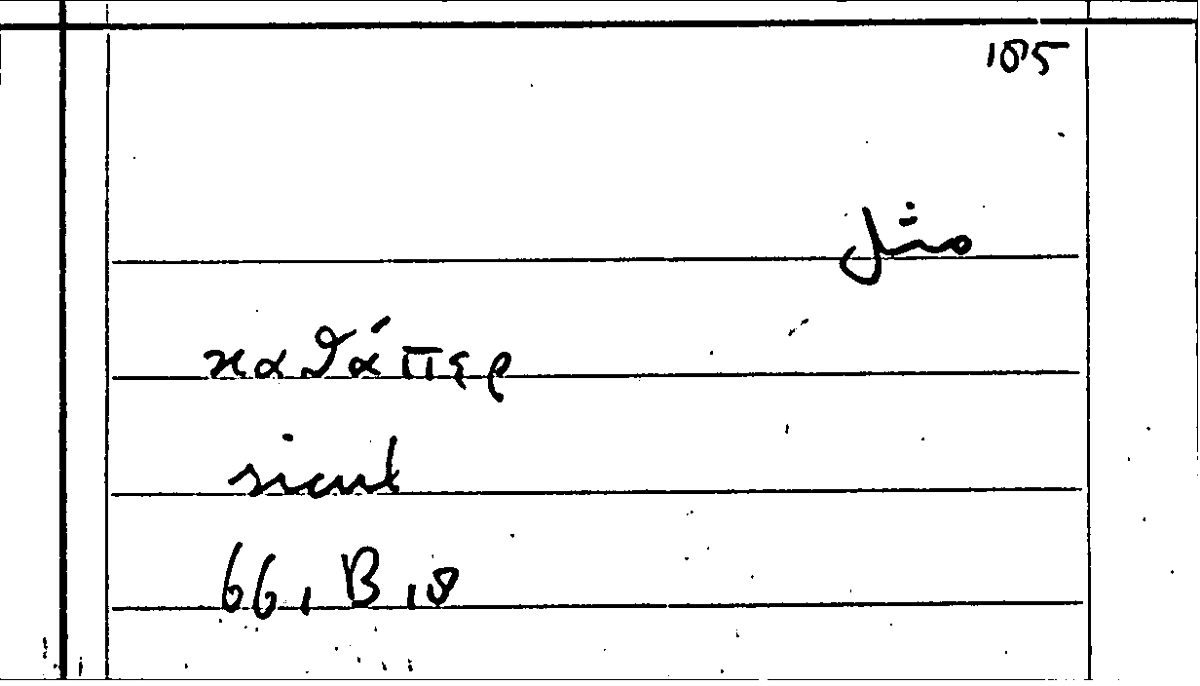 185
مثل
καθάπερ
sicut
66, B 18